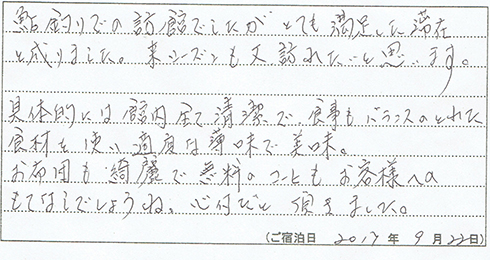 鮎釣りでの訪館でしたがとても満足した滞在
と成りました。来シーズンも又訪れたいと思います。
具体的には館内全て清潔で、食事もバランスのとれた
食材を使い適度な薄味で美味。
お布団も綺麗で無料のコーヒーもお客様への
もてなしでしょうね、心付だと頂きました。
(ご宿泊日 2017年 9月22日)